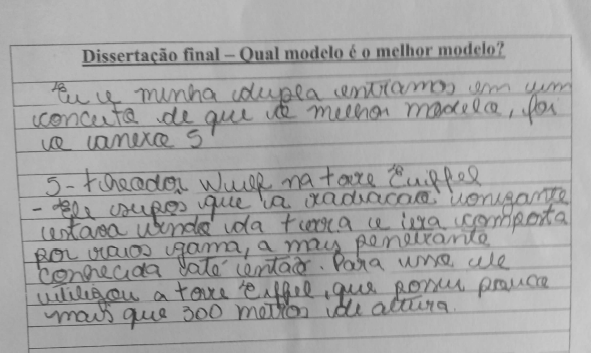 Dissertação final – Qual modelo é o melhor modelo?
Eu e minha dupla entramos em um
conceito de que o melhor modelo, foi
o anexo 5
5- theador Wulf na torre Eiffel
- Ele supos que a radiacao ionizante
estava vindo da terra e era composta
por raios gama, a mais penetrante
conhecida até então. Para uma ele
utilizou a torre Eiffel, que possui pouco
mais que 300 metros de altura.